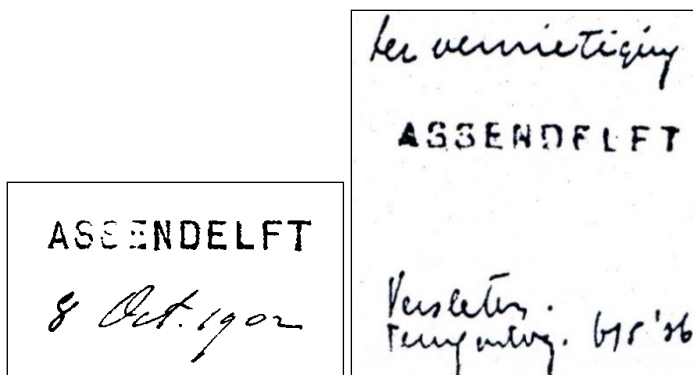 ASSENDELFT
8 Oct. 1902
ter vernietiging
ASSENDELFT
Versleten.
terugontvg. 6/5 '36